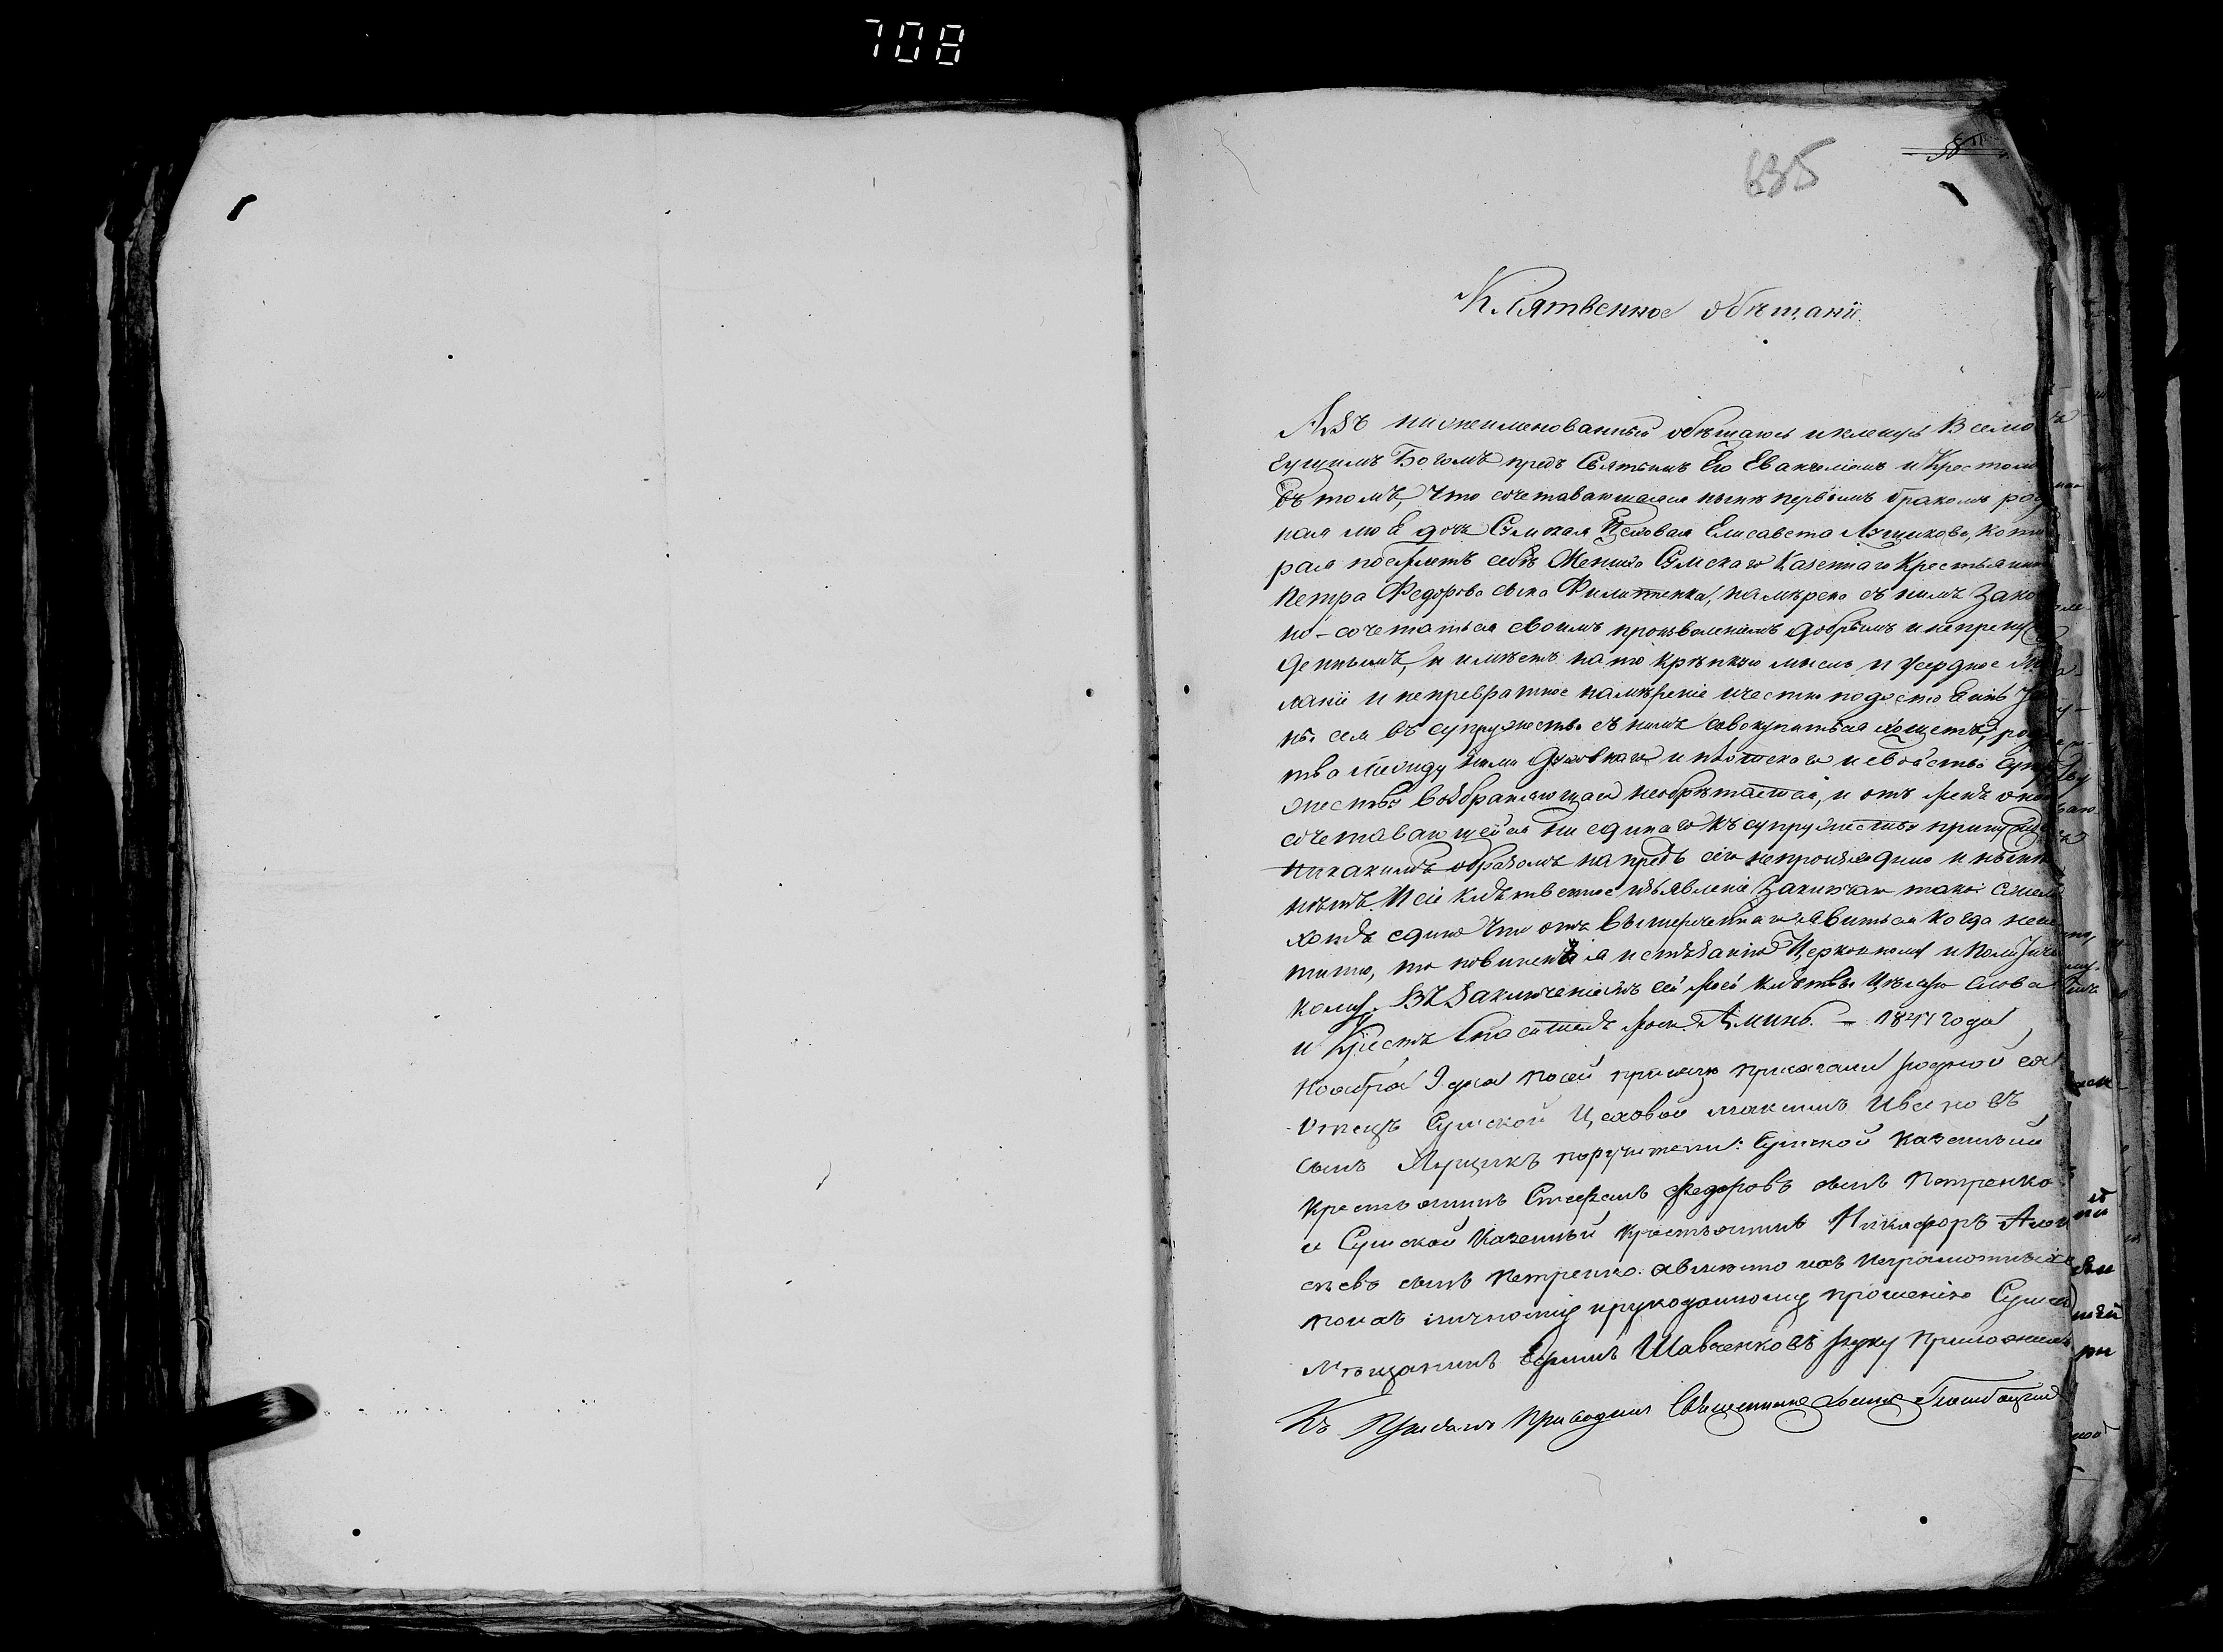 708
635
Клятвенное обѣщаніе
Азъ нижеименованный обѣщаюсь и клянусь Всемо
гущимъ Богомъ предъ Святымъ Его Евангеліемъ и Крестомъ
въ томъ, что сочетавающаяся нынѣ первымъ бракомъ род
ная моя дочь Сумская Цеховая Елисавета Лущикова, кото
рая поемлетъ себѣ Жениха Сумскаго Казеннаго Крестьянин
Петра Федорова сына Филипенка, намѣрена съ нимъ Зако
но-сочетаться своимъ произволеніемъ добрымъ и непрену
деннымъ, и имѣетъ на то крѣпкую мысль и усердное
ланіе и непревратное намѣреніе и честно
въ супружество съ нимъ совокупиться хощетъ, род
тва между ними духовнаго и плотскаго и свойства супру
жество возбраняющаго необрѣтается, и отъ мене оной
сочетавающейся ни единаго къ супружеству принужде
никакимъ образомъ напредь сего непроизходило и нынѣ
нѣтъ. И сіе клятвенное изъявленіе Заключаю такъ
хотя едино что отъ вышереченнаго явиться когда неис
тинно, то повиненъ я истязанію Церковному и Политиче
кому. Въ Заключеніе же сей моей клятвы Цѣлую слова
и Крестъ Спасителя моего. Аминь. — 1841 года
Ноября 9 дня по сей присягѣ присягали родной ея
Отецъ Сумской Цеховой Максимъ Ивановъ
сынъ Лущикъ поручители: Сумской Казенный
крестьянинъ Стефанъ Федоровъ сынъ Петренко
и Сумской Казенный крестьянинъ Никифоръ Алек
сѣевъ сынъ Петренко. а вмѣсто ихъ неграмотныхъ
по ихъ личному и рукоданному прошенію Сумской
Мѣщанинъ Шавченковъ руку приложилъ
Къ Присягѣ Приводилъ Священникъ